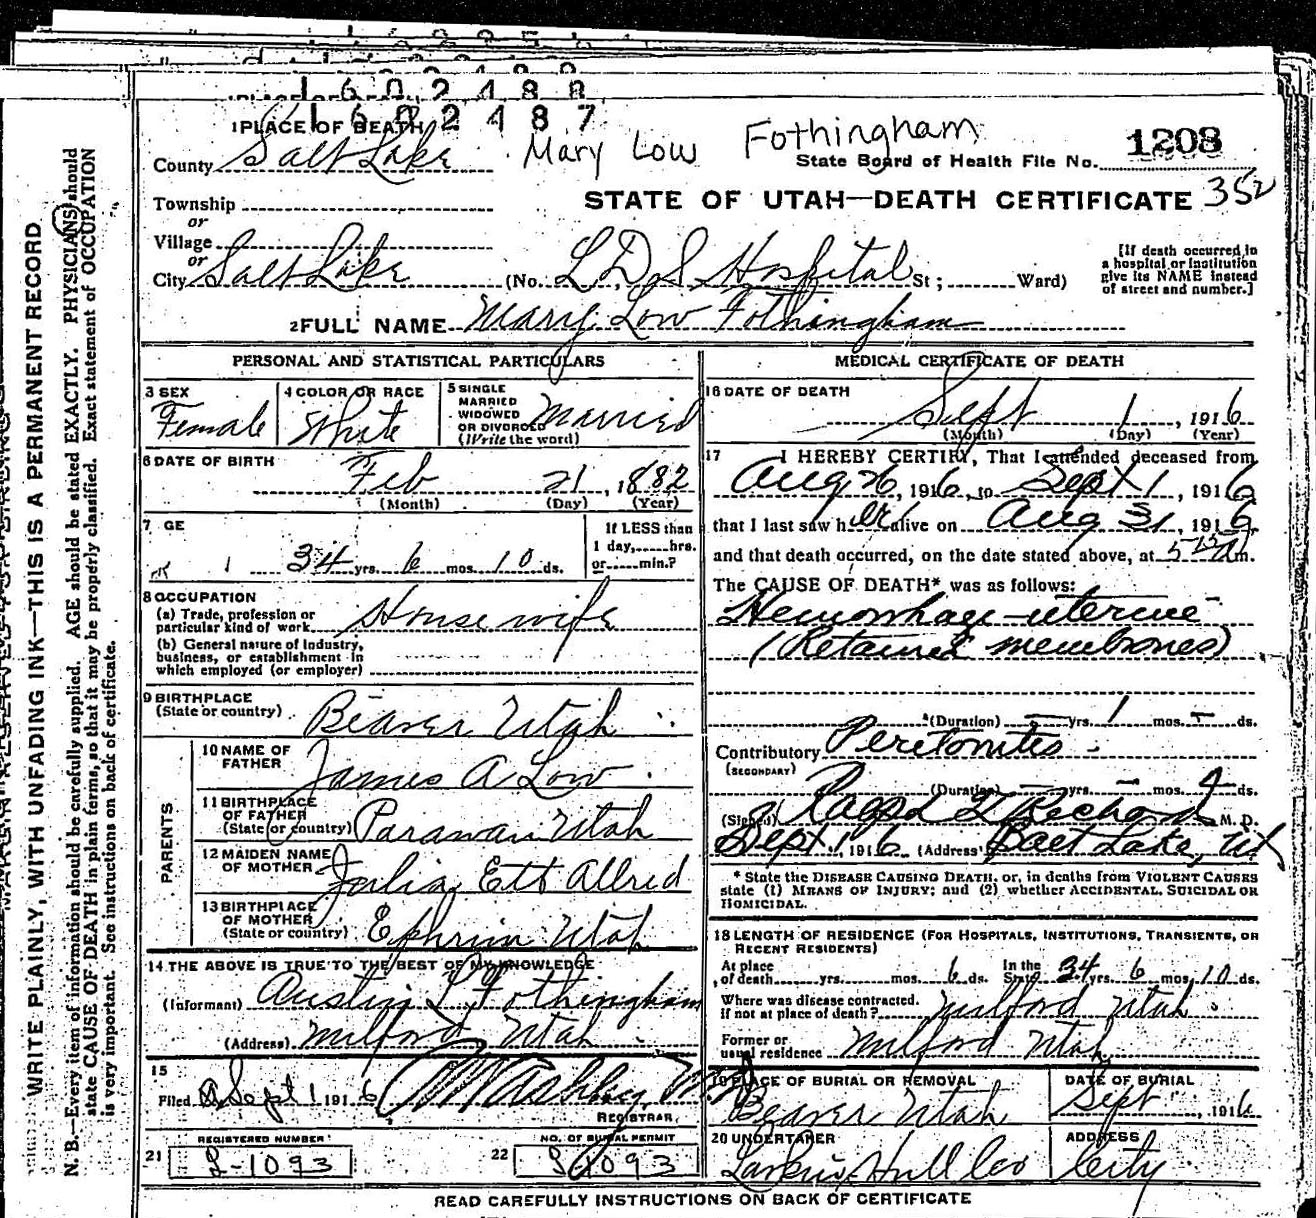 1602488
1602487
1 PLACE OF DEATH
County Salt Lake
Mary Low Fothingham
State Board of Health File No. 1208
STATE OF UTAH—DEATH CERTIFICATE 352
Township
or
Village
or
City Salt Lake (No. L.D.S Hospital St; Ward)
[If death occurred in a hospital or institution give its NAME instead of street and number.]
2 FULL NAME Mary Low Fothingham
PERSONAL AND STATISTICAL PARTICULARS
3 SEX Female
4 COLOR OR RACE White
5 SINGLE MARRIED WIDOWED OR DIVORCED (Write the word) Married
6 DATE OF BIRTH
Feb 21, 1882
(Month) (Day) (Year)
7 GE
34 yrs. 6 mos. 10 ds.
If LESS than 1 day, hrs. or min.?
8 OCCUPATION
(a) Trade, profession or particular kind of work Housewife
(b) General nature of Industry, business, or establishment in which employed (or employer)
9 BIRTHPLACE
(State or country) Beaver Utah
PARENTS
10 NAME OF FATHER James A Low
11 BIRTHPLACE OF FATHER (State or country) Parawan Utah
12 MAIDEN NAME OF MOTHER Julia Ett Allred
13 BIRTHPLACE OF MOTHER (State or country) Ephrim Utah
14 THE ABOVE IS TRUE TO THE BEST OF MY KNOWLEDGE
(Informant) Austin L Fothingham
(Address) Milford, Utah
15
Filed Sept 1 1916
REGISTRAR
REGISTERED NUMBER
21 S-1093
NO. OF BURIAL PERMIT
22 S 1093
MEDICAL CERTIFICATE OF DEATH
16 DATE OF DEATH
Sept 1, 1916
(Month) (Day) (Year)
17 I HEREBY CERTIFY, That I attended deceased from
Aug 26, 1916, to Sept 1, 1916
that I last saw her alive on Aug 31, 1916
and that death occurred, on the date stated above, at 5 am.
The CAUSE OF DEATH* was as follows:
Hemorrhage-uterine
(Retained membranes)
(Duration) yrs. 1 mos. ds.
Contributory Peretonites
(SECONDARY)
(Duration) yrs. mos. 9 ds.
(Signed) M. D.
Sept. 1, 1916 (Address) Salt Lake, Ut
* State the DISEASE CAUSING DEATH, or, in deaths from VIOLENT CAUSES state (1) MEANS OF INJURY; and (2) whether ACCIDENTAL, SUICIDAL OR HOMICIDAL.
18 LENGTH OF RESIDENCE (FOR HOSPITALS, INSTITUTIONS, TRANSIENTS, OR RECENT RESIDENTS)
At place of death yrs. mos. 6 ds. In the State 34 yrs. 6 mos. 10 ds.
Where was disease contracted, if not at place of death? Milford Utah
Former or usual residence Milford Utah
19 PLACE OF BURIAL OR REMOVAL
Beaver Utah
DATE OF BURIAL
Sept, 1916
20 UNDERTAKER
Larkin Hull Co
ADDRESS
City
READ CAREFULLY INSTRUCTIONS ON BACK OF CERTIFICATE
WRITE PLAINLY, WITH UNFADING INK—THIS IS A PERMANENT RECORD
N. B.—Every item of information should be carefully supplied. AGE should be stated EXACTLY. PHYSICIANS should
state CAUSE OF DEATH in plain terms, so that it may be properly classified. Exact statement of OCCUPATION
is very important. See instructions on back of certificate.